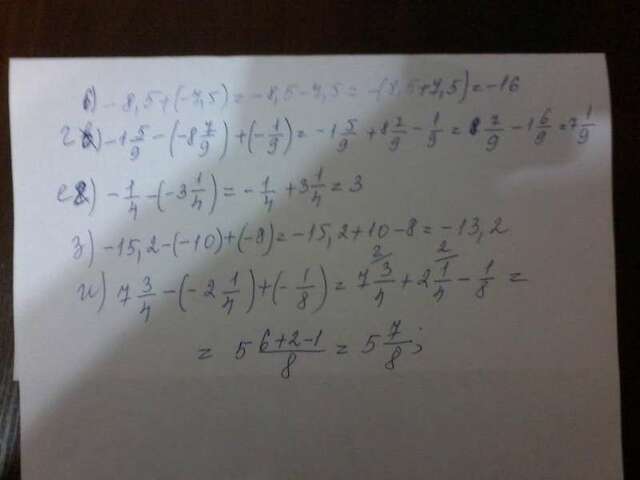 в) -8,5+(-7,5)=-8,5-7,5=-(8,5+7,5)=-16
г) -1 5/9-(-8 7/9)+(-1/9)=-1 5/9+8 7/9-1/9=8 7/9-1 6/9=7 1/9
е) -1/4-(-3 1/4)=-1/4+3 1/4=3
з) -15,2-(-10)+(-8)=-15,2+10-8=-13,2
и) 7 3/4-(-2 1/4)+(-1/8)=7 3/4+2 1/4-1/8=
=5 6+2-1/8=5 7/8;